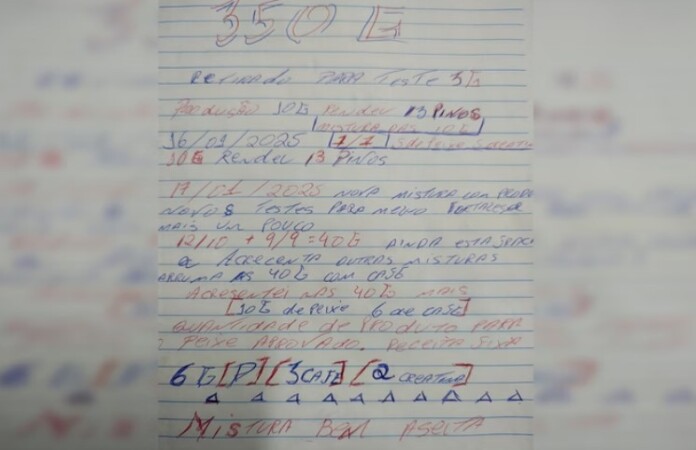 350 G
RETIRADO PARA TESTE 3G
PRODUÇÃO 10G RENDEU 13 PINOS
MISTURA DAS 10G
16/01/2025 1/1
10G RENDEU 13 PINOS
17/01/2025 NOVA MISTURA COM
NOVOS TESTES PARA MELHO FORTALESER
MAIS UM POUCO
12/10 + 9/9 = 40G AINDA ESTA
ACRECENTA OUTRAS MISTURAS
ARRUMA AS 40G COM CAFE
ACRESENTEI NAS 40G MAIS
[10G de PEIXE 6 DE CAFE]
QUANTIDADE de PRODUTO PARA
PEIXE APROVADO. RECEITA FIXA
6G[P][3CAFE][2 CREATINA]
MISTURA BEM ASEITA